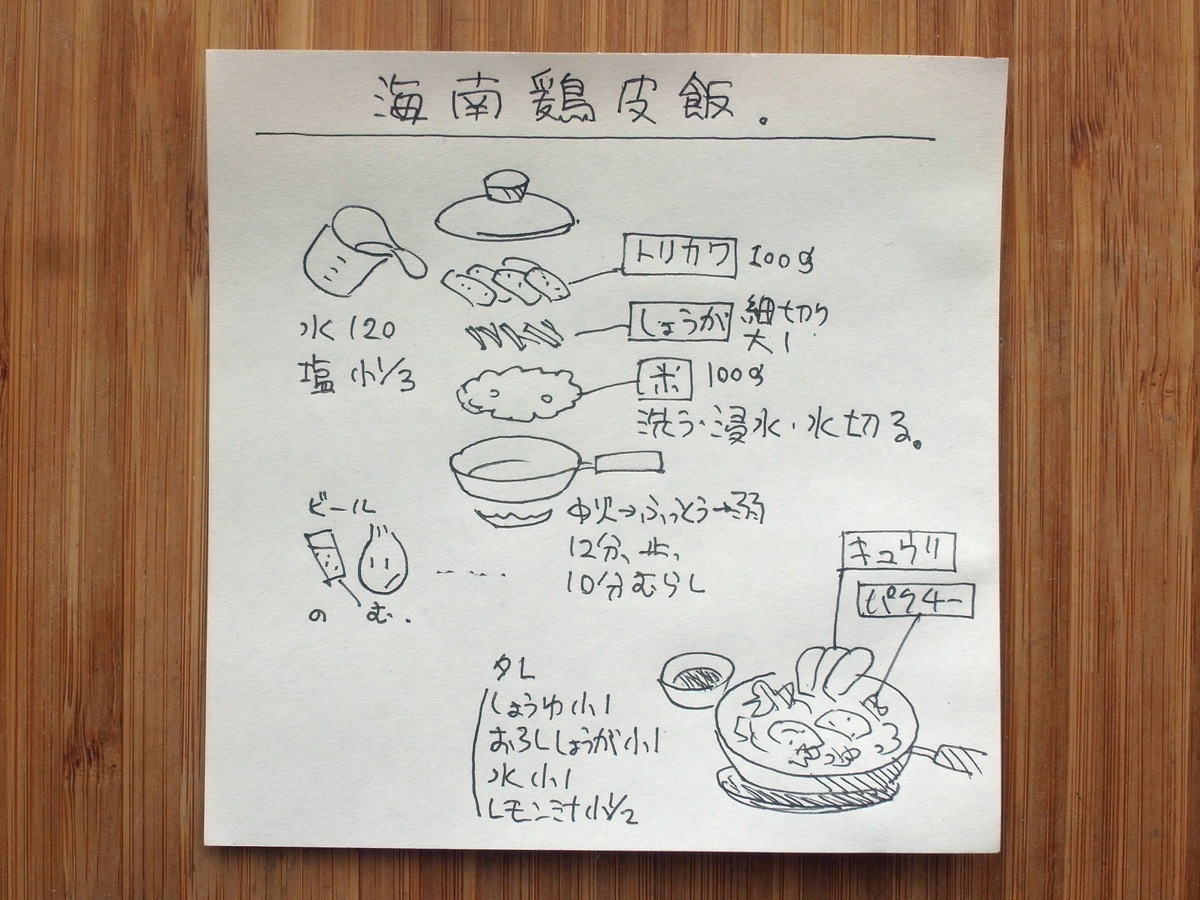 海南鶏皮飯.
トリカワ 100g
しょうが 細切り
大1
水120
塩 小1/3
米 100g
洗う・浸水・水切る。
ビール
のむ.
中火→ふっとう→弱
12分、止、
10分むらし
キュウリ
パクチー
タレ
しょうゆ小1
おろししょうが小1
水小1
レモン汁小1/2